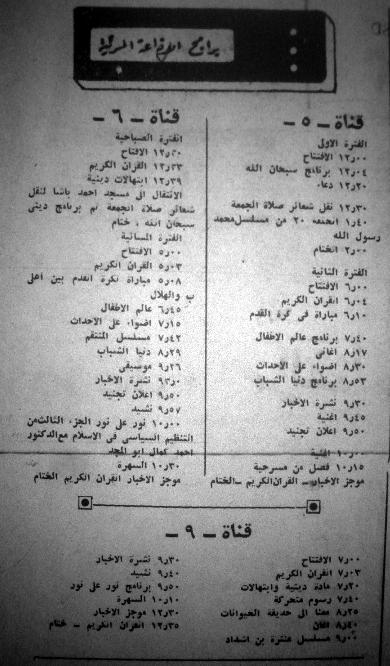 برامج الاذاعة المرئية
قناة - ٥ -
الفترة الاولى
١٢٫٠٠ الافتتاح
١٢٫٠٤ برنامج سبحان الله
١٢٫٢٠ دعاء
١٢٫٣٠ نقل شعائر صلاة الجمعة
١٫٤٠ الحلقة ٢٠ من مسلسل محمد
رسول الله
٢٫٠٠ الختام
الفترة الثانية
٦٫٠٠ الافتتاح
٦٫٠٤ القران الكريم
٦٫١٠ مباراة في كرة القدم
٧٫٤٠ برنامج عالم الاطفال
٨٫١٧ اغاني
٨٫٣٠ اضواء على الأحداث
٨٫٥٣ برنامج دنيا الشباب
٩٫٣٠ نشرة الاخبار
٩٫٤٥ اغنية
٩٫٥٠ اعلان تجنيد
١٠٫٠٠ اغنية
١٠٫١٥ فصل من مسرحية
موجز الاخبار - القران الكريم - الختام
قناة - ٦ -
الفترة الصباحية
١٢٫٣٠ الافتتاح
١٢٫٣٣ القران الكريم
١٢٫٣٩ ابتهالات دينية
الانتقال الى مسجد احمد باشا لنقل
شعائر صلاة الجمعة ثم برنامج ديني
سبحان الله ، ختام
الفترة المسائية
٥٫٠٠ الافتتاح
٥٫٠٣ القران الكريم
٥٫٠٨ مباراة لكرة القدم بين اهلي
ب والهلال
٦٫٤٥ عالم الاطفال
٧٫١٥ اضواء على الاحداث
٧٫٤٢ مسلسل المنتقم
٨٫٢٩ دنيا الشباب
٩٫٢٦ موسيقى
٩٫٣٠ نشرة الاخبار
٩٫٥٠ اعلان تجنيد
٩٫٥٧ نشيد
١٠٫٠٠ نور على نور الجزء الثالث من
التنظيم السياسى فى الاسلام مع الدكتور
احمد كمال ابو المجد
١٠٫٣٠ السهرة
موجز الاخبار القران الكريم الختام
قناة - ٩ -
٧٫٠٠ الافتتاح
٧٫٠٣ القران الكريم
٧٫٢٠ مادة دينية وابتهالات
٧٫٤٠ رسوم متحركة
٨٫٢٥ معنا الى حديقة الحيوانات
٨٫٤٠ اغان
٩٫٠٠ مسلسل عنترة بن شداد
٩٫٣٠ نشرة الاخبار
٩٫٤٠ نشيد
٩٫٥٠ برنامج نور على نور
١٠٫١٠ السهرة
١٢٫٣٠ موجز الاخبار
١٢٫٣٥ القران الكريم - ختام